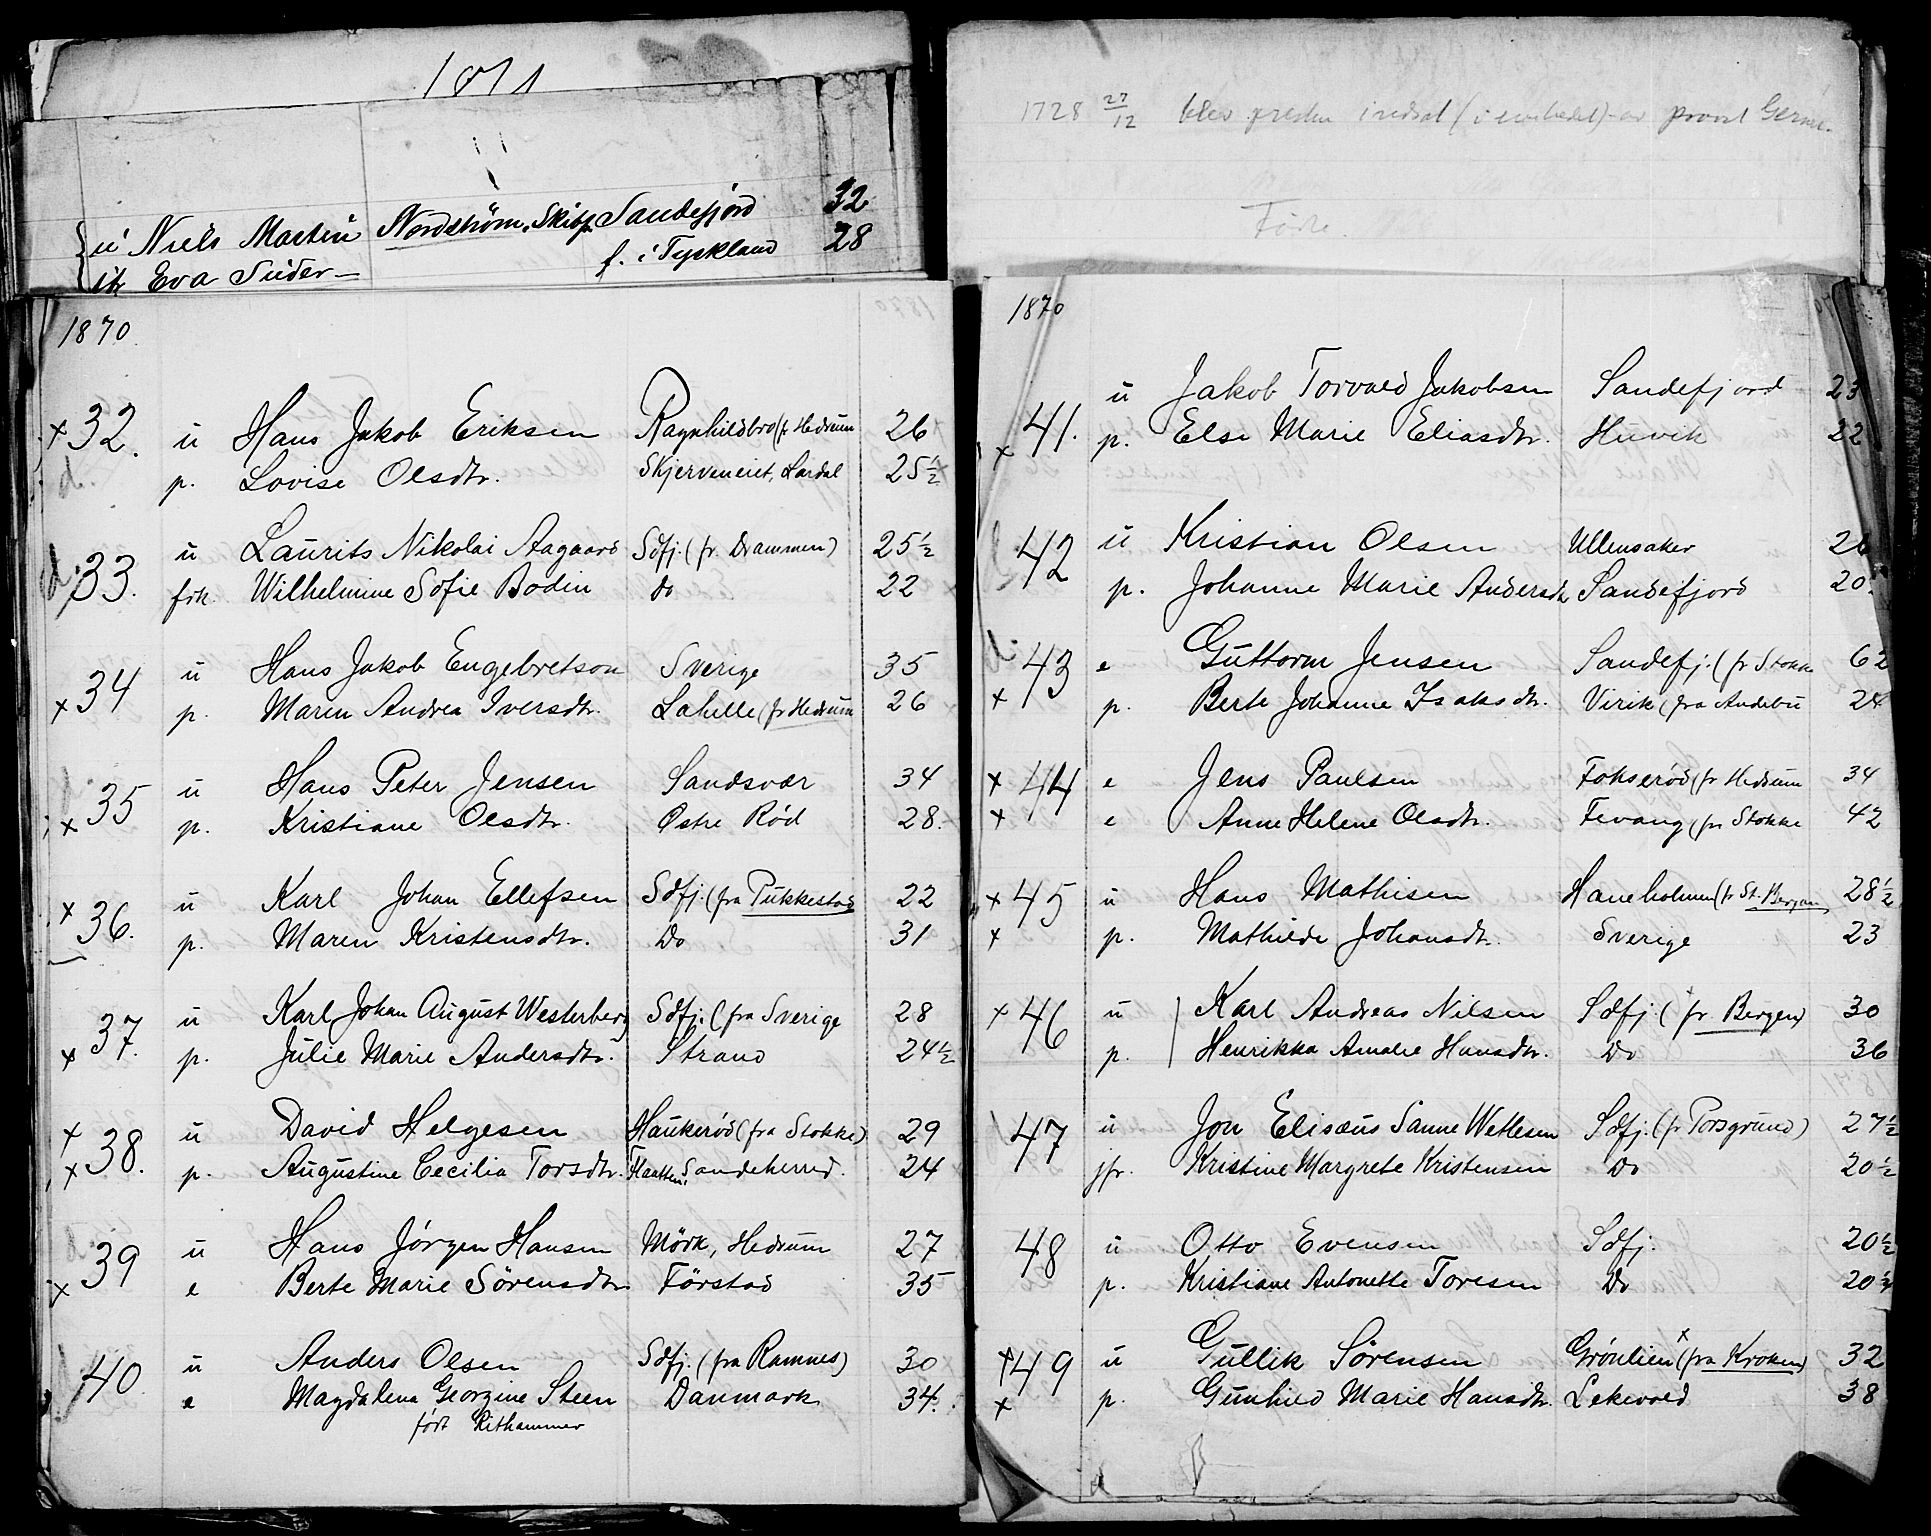 1871
u Niels Martin Nordstrøm, Skibsf. Sandefjord 32
Eva Suder f. i Tyskland 28
1870
x 32. u Hans Jakob Eriksen Ragnhildbro (fr Hedrum 26
d. p. Lovise Olsdtr. Skjerveneiet, Lardal 25½
d. 33. u Laurits Nikolai Aagaard Sdfj. (fr. Drammen) 25½
frk. Wilhelmine Sofie Bodin do 22
34 u Hans Jakob Engebretson Sverige 35
x p. Maren Andrea Iversdtr. Lahelle (fr Hedrum 26
35 u Hans Peter Jensen Sandsvær 34
x p. Kristiane Olsdtr. Østre Rød 28.
x 36. u Karl Johan Ellefsen Sdfj. (fra Pukkestad 22
p. Maren Kristensdtr. Do 31
37. u Karl Johan August Westerberg Sdfj. (fra Sverige 28
x p. Julie Marie Andersdtr. Strand 24½
x 38. u David Helgesen Haukerød (fra Stokke) 29
x p. Augustine Cecilia Torsdtr. Haatten, Sandeherred. 24
39 u Hans Jørgen Hansen Mørk, Hedrum 27
x e Berte Marie Sørensdtr. Førstad 35
40. u Anders Olsen Sdfj. (fra Ramnes) 30
e Magdalena Georgine Steen Danmark 34.
født Rithammer
1728 27/12 blev presten indsat (i embedet) av provst
Føste.
1870
41. u Jakob Torvald Jakobsen Sandefjord 23
x p. Else Marie Eliasdtr. Huvik 22
42 u Kristian Olsen Ullensaker 26
p. Johanne Marie Andersdtr Sandefjord 20
d. 43 e Guttorm Jensen Sandefj. (fr Stokke 62
x p. Berte Johanne Isaksdtr. Virik (fra Andebu 24
x 44 e Jens Paulsen Fokserød (fr Hedrum 34
x e Anne Helene Olsdtr. Fevang (fr Stokke 42
x 45 u Hans Mathisen Haneholmen (fr St. Bergan 28½
x p. Mathilde Johansdtr. Sverige 23
x 46 u Karl Andreas Nilsen Sdfj. (fr. Bergen) 30
p. Henrikka Amalie Hansdtr. Do 36
47 u Jon Elisæus Sanne Wetlesen Sdfj. (fr Porsgrund) 27½
jfr. Kristine Margrete Kristensen Do 20½
48 u Otto Evensen Sdfj. 20½
p. Kristiane Antonette Toresen Do 20½
x 49 u Gullik Sørensen Grønlien x (fra Kroken) 32
x p. Gunhild Marie Hansdtr. Lekevold 38